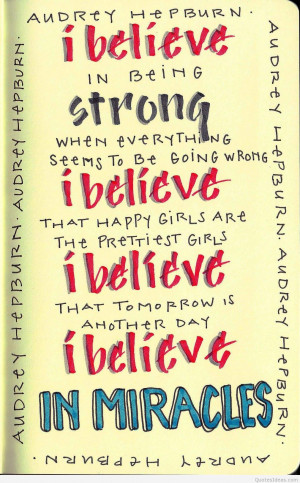 AUDREY HEPBURN.
i believe
IN BEING
strong
WHEN EVERYTHING
SEEMS TO BE GOING WRONG
i believe
THAT HAPPY GIRLS ARE
THE PRETTIEST GIRLS
i believe
THAT TOMORROW IS
ANOTHER DAY
i believe
IN MIRACLES
AUDREY HEPBURN. AUDREY HEPBURN.
AUDREY HEPBURN.
AUDREY HEPBURN. AUDREY HEPBURN.
QuotesIdeas.com